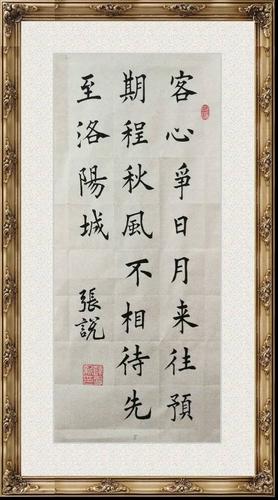 客心爭日月来往預
期程秋風不相待先
至洛陽城
張說